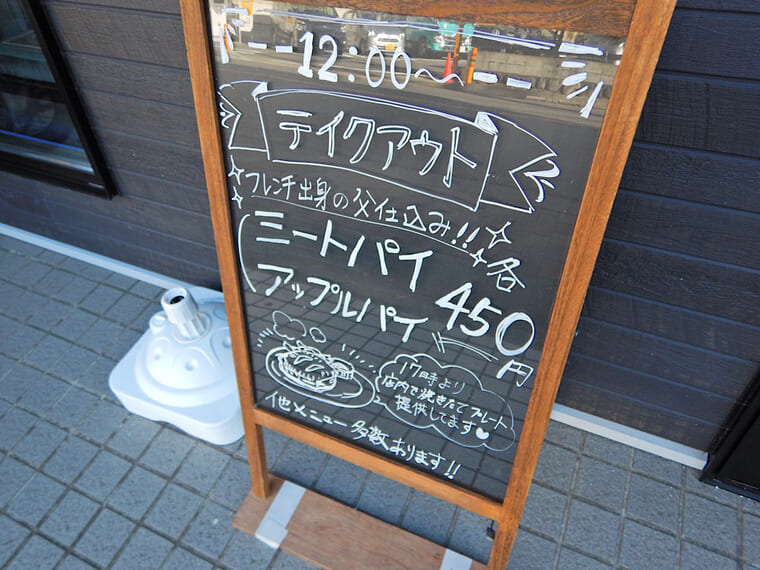 12:00〜
テイクアウト
フレンチ出身の父仕込み!!
ミートパイ
アップルパイ
各
450
円
17時より
店内で焼きたてプレート
提供してます♥
他メニュー多数あります!!